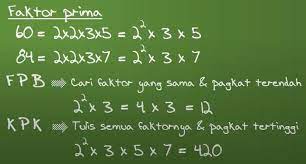 Faktor prima
60 = 2x2x3x5 = 2² x 3 x 5
84 = 2x2x3x7 = 2² x 3 x 7
FPB ⇒ Cari faktor yang sama & pagkat terendah
2² x 3 = 4 x 3 = 12
KPK ⇒ Tulis semua faktornya & pagkat tertinggi
2² x 3 x 5 x 7 = 420